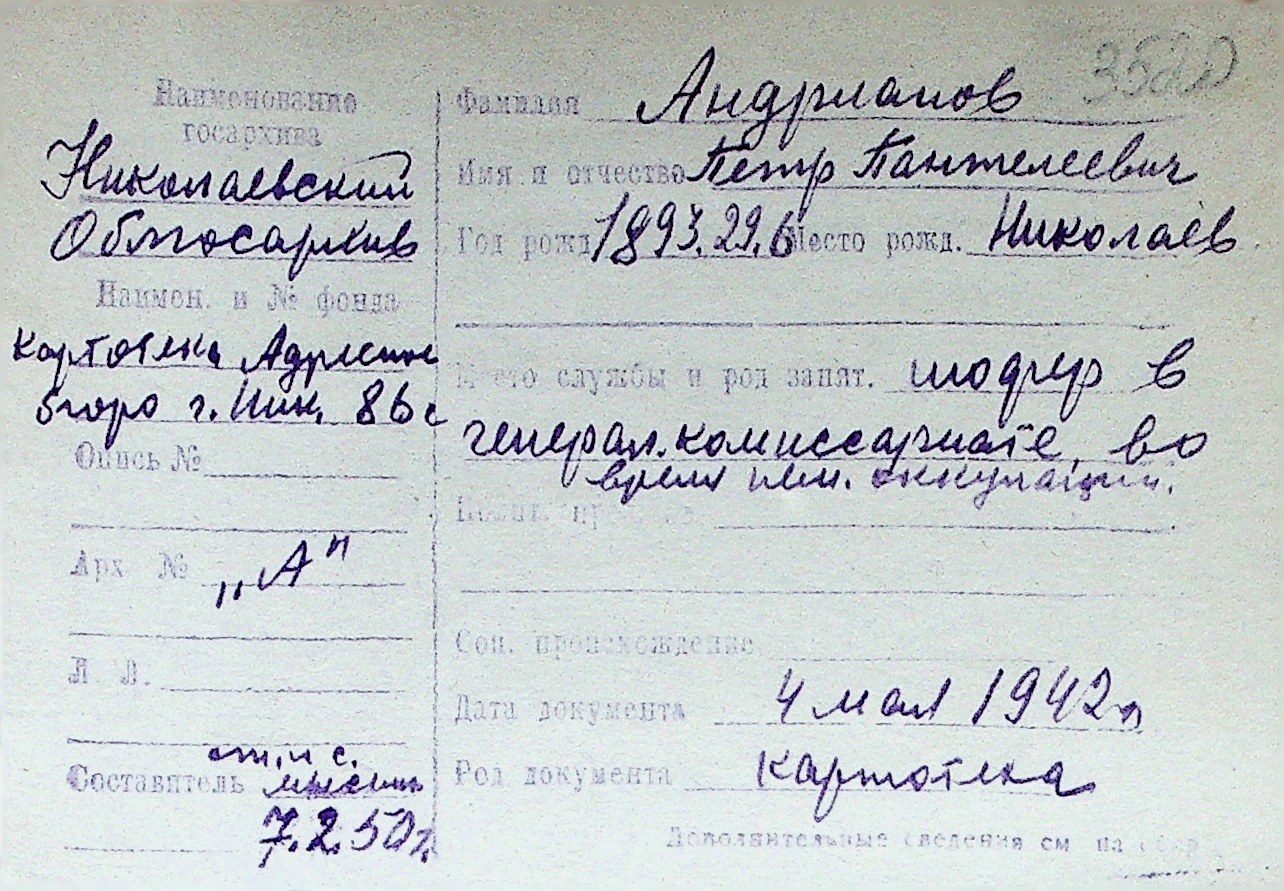 Наименование
госархива
Николаевский
Облгосархив
Наимен. и № фонда
Картотека Адресное
бюро г. Ник. 86с
Опись №
Арх №
„А"
Л Л.
Составитель
7.2.50г.
Фамилия Андрианов
Имя и отчество Петр Пантелеевич
Год рожд 1893.29.6 Место рожд. Николаев
Место службы и род занят. шофер в
генерал.комиссариате, во
время нем. оккупации.
Соц. происхождение
Дата документа 4 мая 1942г
Род документа Картотека
Дополнительные сведения см на обор